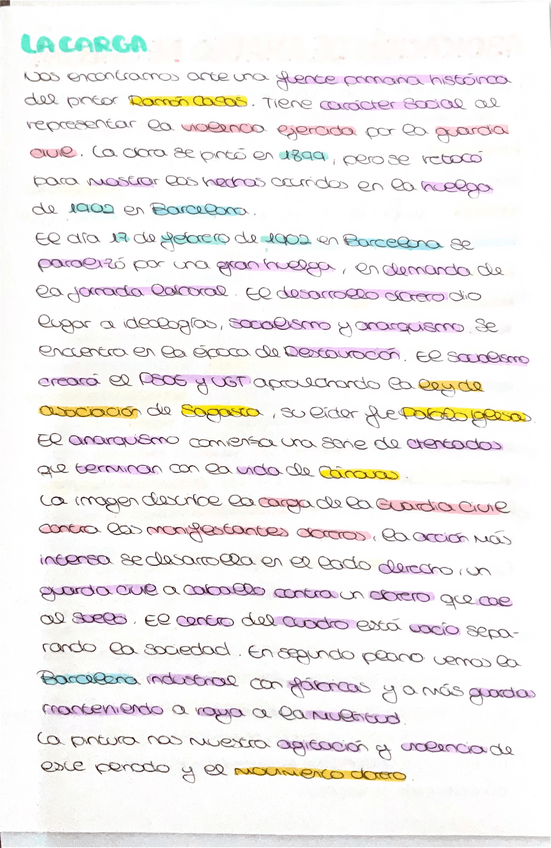 LA CARGA
Nos encontramos ante una fuente primaria histórica
del pintor Ramón Casas. Tiene carácter social al
representar la violencia ejercida por la guardia
civil. La obra se pintó en 1899, pero se retocó
para mostrar los hechos ocurridos en la huelga
de 1902 en Barcelona.
El día 17 de febrero de 1902 en Barcelona se
paralizó por una gran huelga, en demanda de
la jornada laboral. El desarrollo obrero dio
lugar a ideologías, socialismo y anarquismo. Se
encuentra en la época de Restauración. El socialismo
creará el PSOE y UGT aprovechando la ley de
asociación de Sagasta, su líder fue Pablo Iglesias.
El anarquismo comienza una serie de atentados
que terminan con la vida de Cánovas.
La imagen describe la carga de la Guardia Civil
contra los manifestantes obreros, la acción más
intensa se desarrolla en el lado derecho, un
guardia civil a caballo contra un obrero que cae
al suelo. El centro del cuadro está vacío sepa-
rando la sociedad. En segundo plano vemos la
Barcelona industrial con fábricas y a más guardias
manteniendo a raya a la multitud.
La pintura nos muestra agitación y violencia de
este periodo y el movimiento obrero.